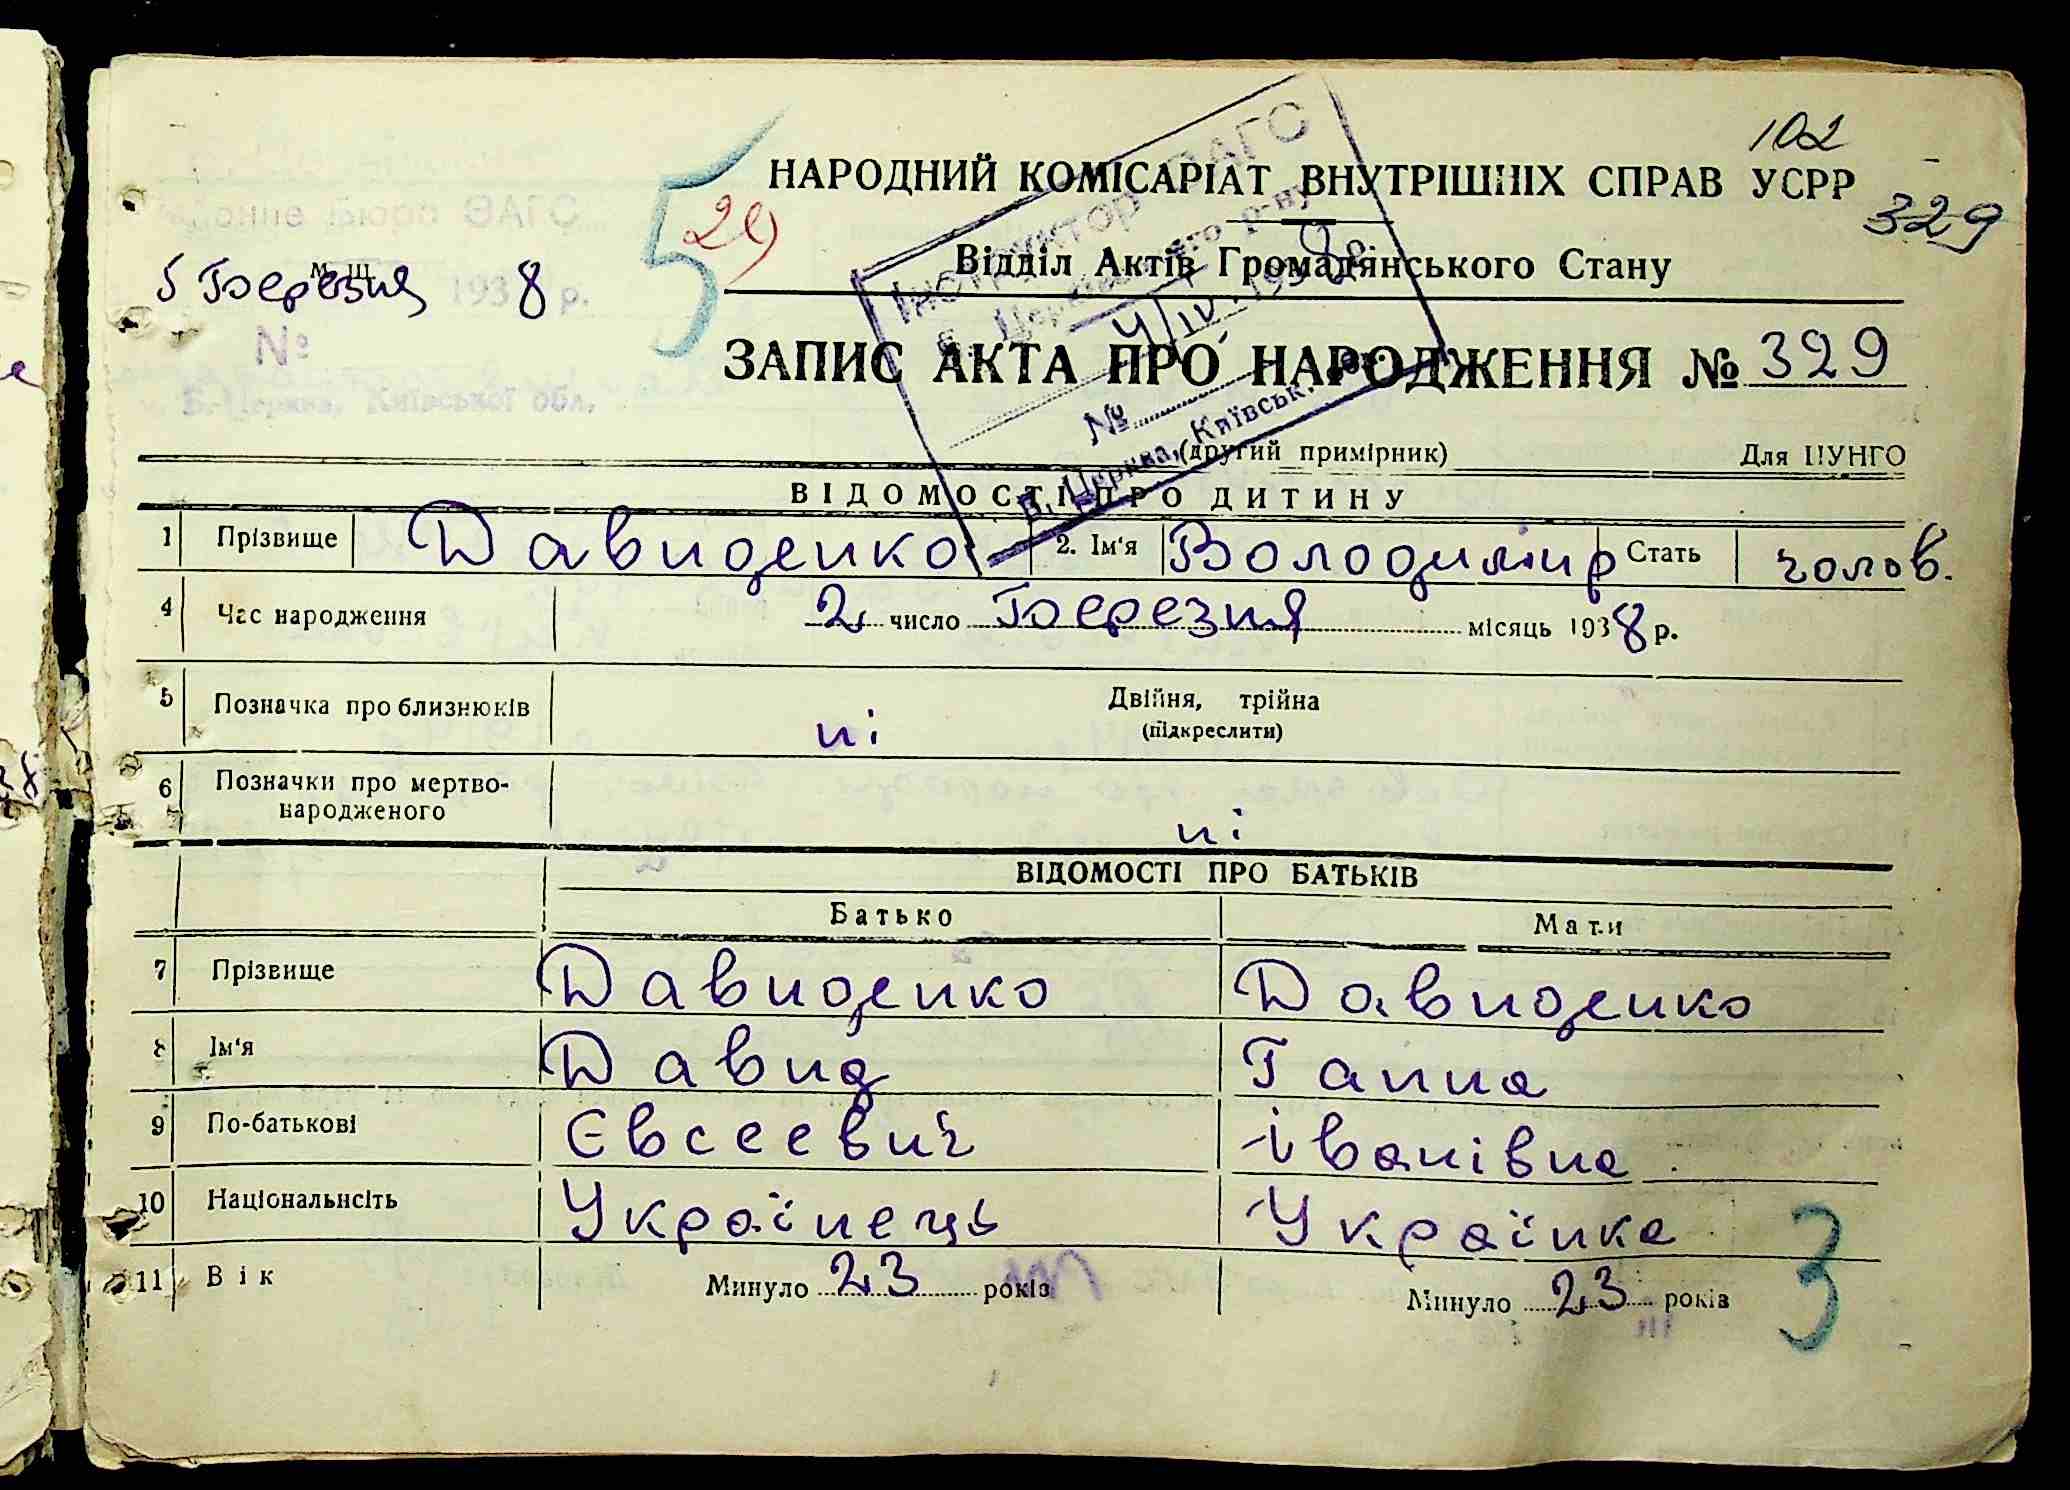 102
НАРОДНИЙ КОМІСАРІАТ ВНУТРІШНІХ СПРАВ УСРР
329
5 29
Відділ Актів Громадянського Стану
районне Бюро ЗАГС
м. щ.
5 Березня 1938 р.
№
м. Б.-Церква, Київської обл.
Інструктор ЗАГС
Б. Церківського р-ну
4/IV 1938 р.
№
Б. Церква, Київськ. обл.
ЗАПИС АКТА ПРО НАРОДЖЕННЯ № 329
(другий примірник) Для ЦУНГО
ВІДОМОСТІ ПРО ДИТИНУ
1 Прізвище Давиденко 2. Ім'я Володимир Стать чолов.
4 Час народження 2 число Березня місяць 1938 р.
5 Позначка про близнюків ні Двійня, трійна
(підкреслити)
6 Позначки про мертво-
народженого ні
ВІДОМОСТІ ПРО БАТЬКІВ
Батько Мати
7 Прізвище Давиденко Давиденко
8 Ім'я Давид Ганна
9 По-батькові Євсеевич Іванівна
10 Національнсіть Українець Українка
11 Вік Минуло 23 років Минуло 23 років
3